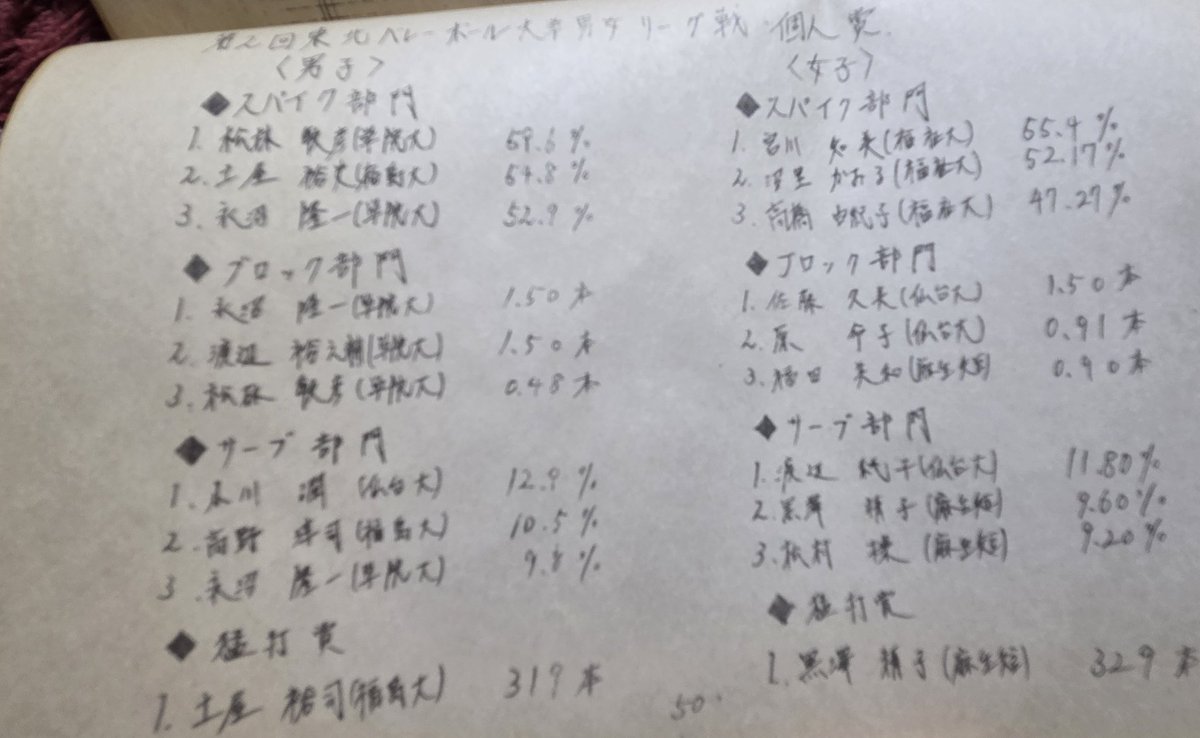 回東北バレーボール大学男女リーグ戦 個人賞
〈男子〉
◆スパイク部門
1. 松林 敏彦(学院大) 59.6%
2. 土屋 裕(福島大) 54.8%
3. 永沼 隆一(学院大) 52.9%
◆ブロック部門
1. 永沼 隆一(学院大) 1.50本
2. 渡辺 裕之輔(学院大) 1.50本
3. 松林 敏彦(学院大) 0.48本
◆サーブ部門
1. 川 潤 (仙台大) 12.9%
2. 高野 司(福島大) 10.5%
3. 永沼 隆一(学院大) 9.8%
◆猛打賞
1. 土屋 裕司(福島大) 319本
〈女子〉
◆スパイク部門
1. 宮川 知美(福産大) 55.4%
2. かおる(福産大) 52.17%
3. 高橋 由紀子(福産大) 47.27%
◆ブロック部門
1. 佐藤 久美(仙台大) 1.50本
2. 原 子(仙台大) 0.91本
3. 稲田 美和(麻生短) 0.90本
◆サーブ部門
1. 渡辺 子(仙台大) 11.80%
2. 黒澤 精子(麻生短) 9.60%
3. 松村 (麻生短) 9.20%
◆猛打賞
1. 黒澤 精子(麻生短) 329本
50